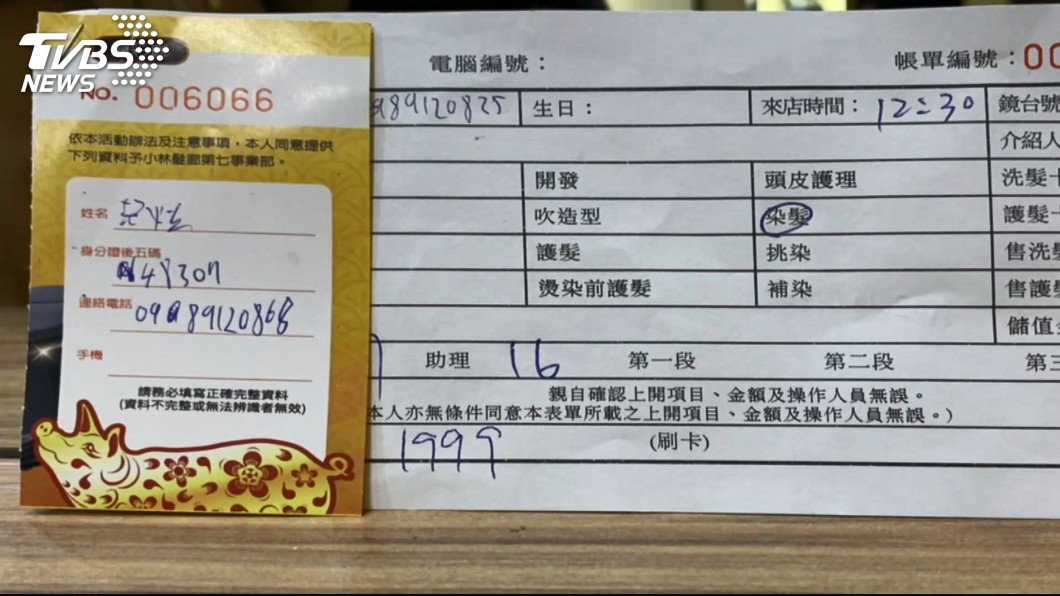 TVBS
NEWS
NO. 006066
依本活動辦法及注意事項,本人同意提供
下列資料予小林髮廊第七事業部。
姓名
身分證後五碼
聯絡電話
手機
請務必填寫正確完整資料
(資料不完整或無法辨識者無效)
電腦編號: 帳單編號:00
89120825 生日: 來店時間: 12:30 鏡台號
介紹人
開發 頭皮護理 洗髮卡
吹造型 染髮 護髮
護髮 挑染 售洗髮
燙染前護髮 補染 售護髮
儲值金
助理 16 第一段 第二段 第三
親自確認上開項目、金額及操作人員無誤。
本人亦無條件同意本表單所載之上開項目、金額及操作人員無誤。)
1999 (刷卡)